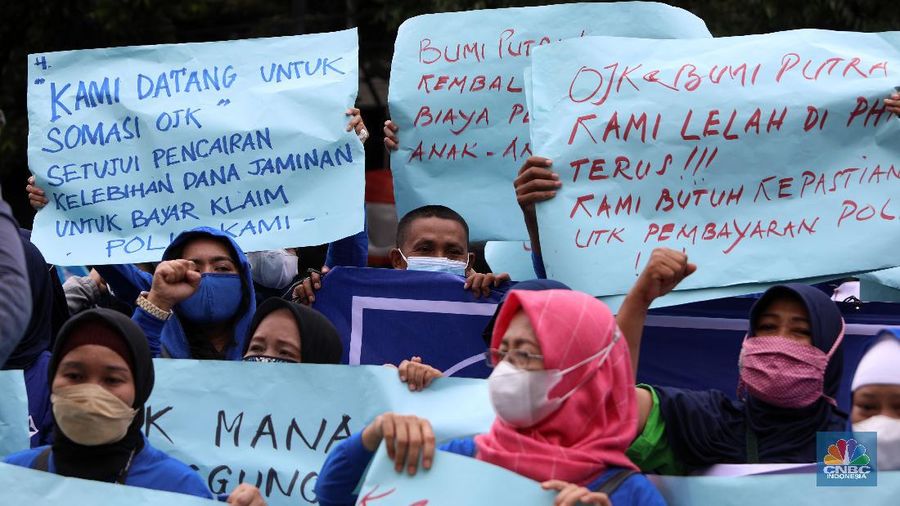 4.
"KAMI DATANG UNTUK
SOMASI OJK"
SETUJUI PENCAIRAN
KELEBIHAN DANA JAMINAN
UNTUK BAYAR KLAIM
KAMI -
BUMI PUTRA
BIAYA
ANAK - AN
OJK & BUMI PUTRA
KAMI LELAH DI PH
TERUS!!!
KAMI BUTUH KEPASTIAN
UTK PEMBAYARAN POLI
K MANA
GGUNG
CNBC
INDONESIA